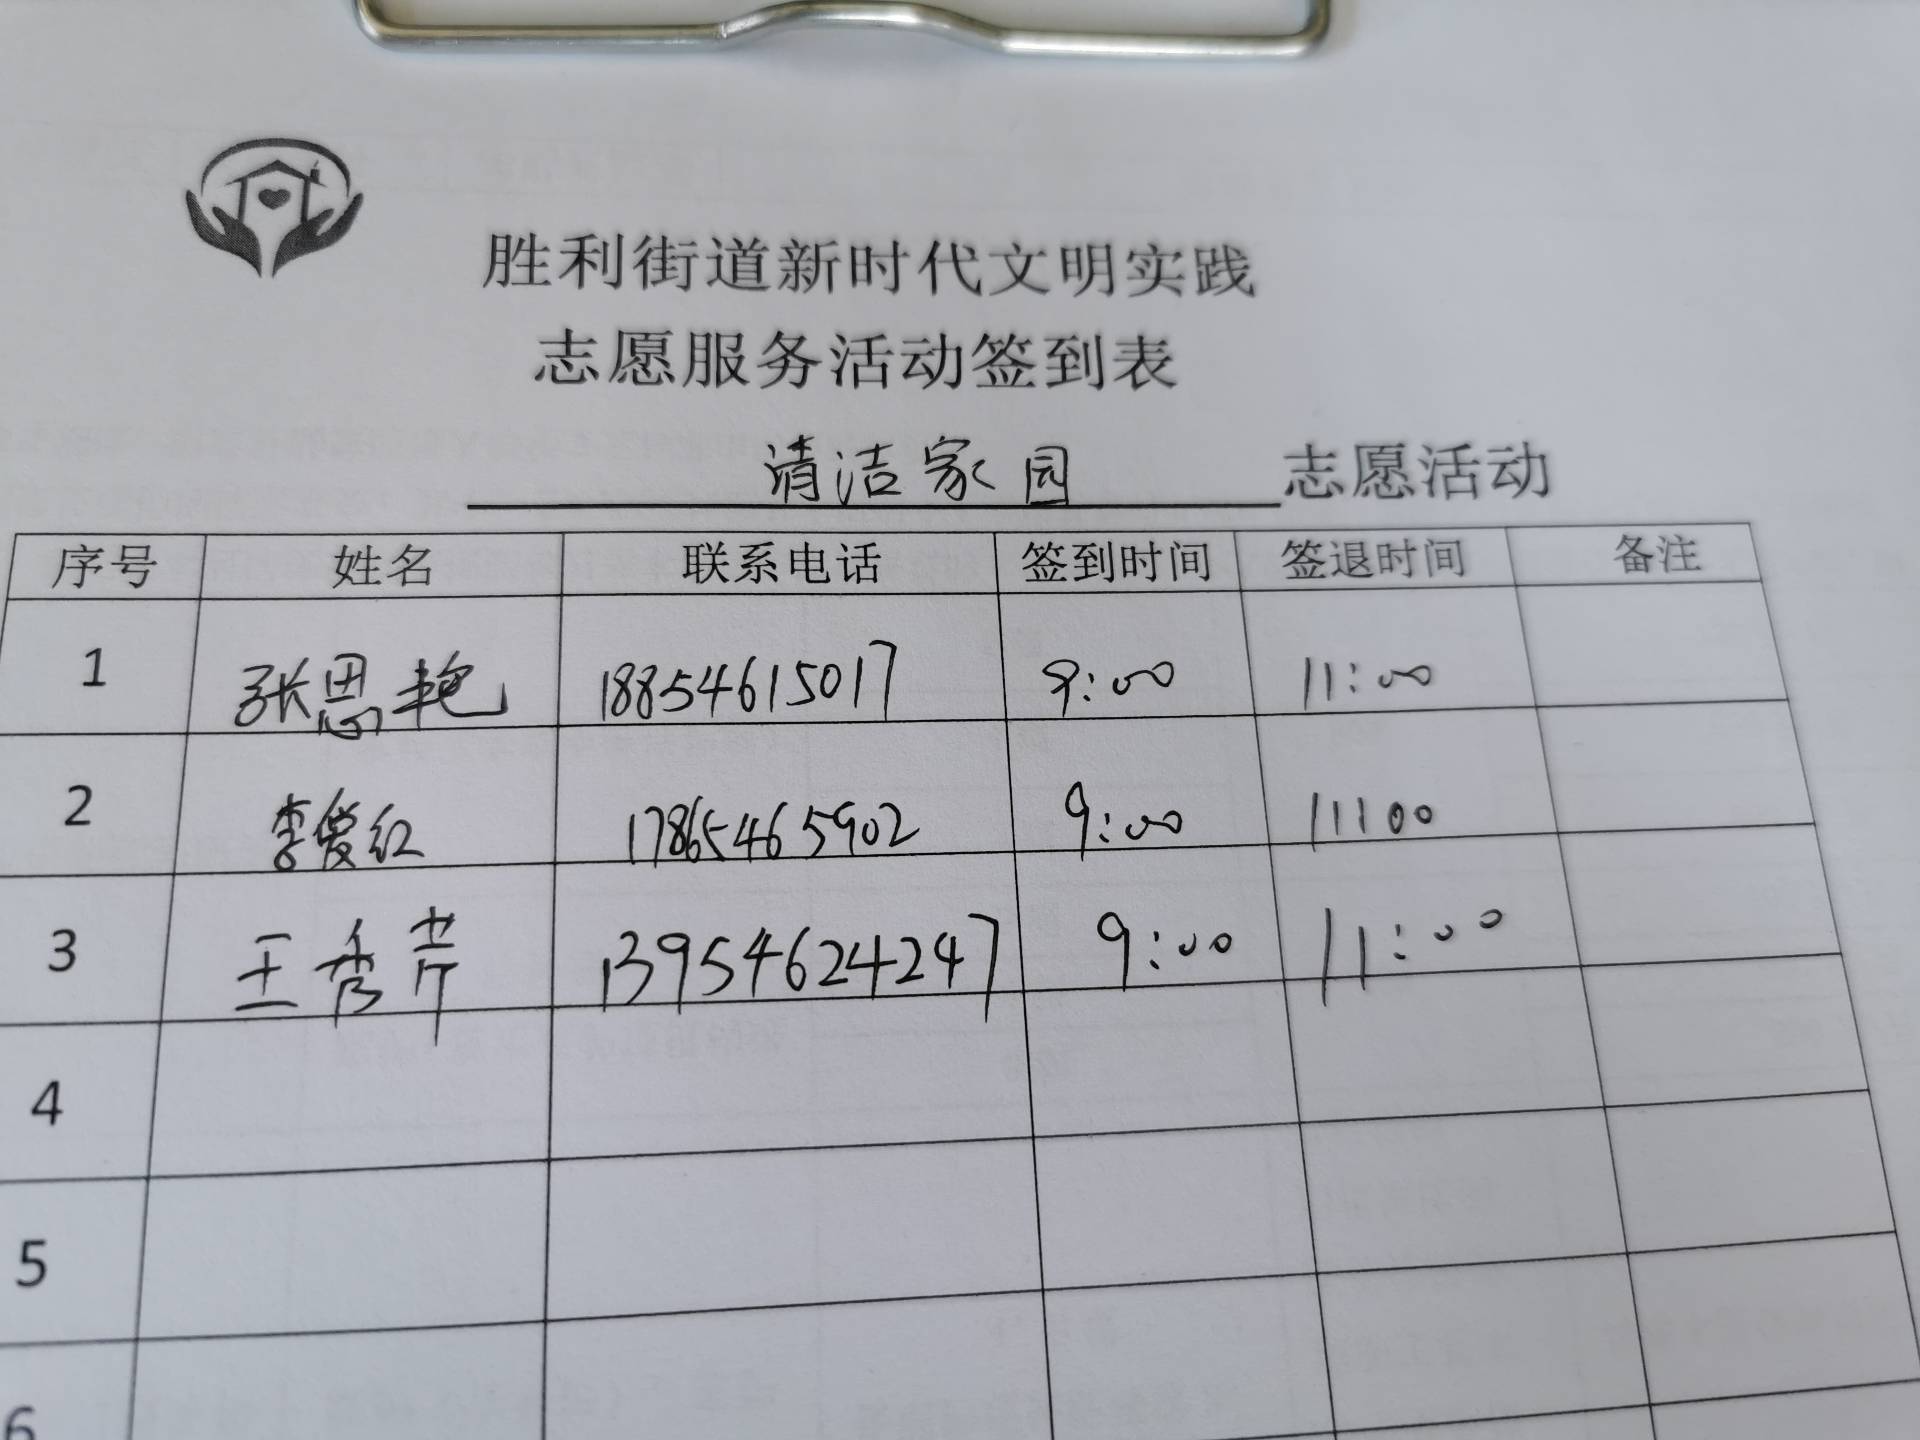 胜利街道新时代文明实践
志愿服务活动签到表
清洁家园 志愿活动
序号 姓名 联系电话 签到时间 签退时间 备注
1 张恩艳 18854615017 9:00 11:00
2 李爱红 17865465902 9:00 11100
3 王秀芹 13954624247 9:00 11:00
4
5
6